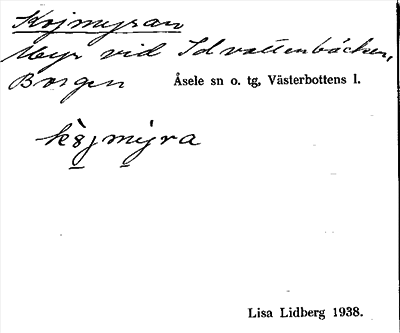 Kojmyran
Myr vid Idvattenbäcken,
Borgen Åsele sn o. tg, Västerbottens l.
kȣjmyra
Lisa Lidberg 1938.